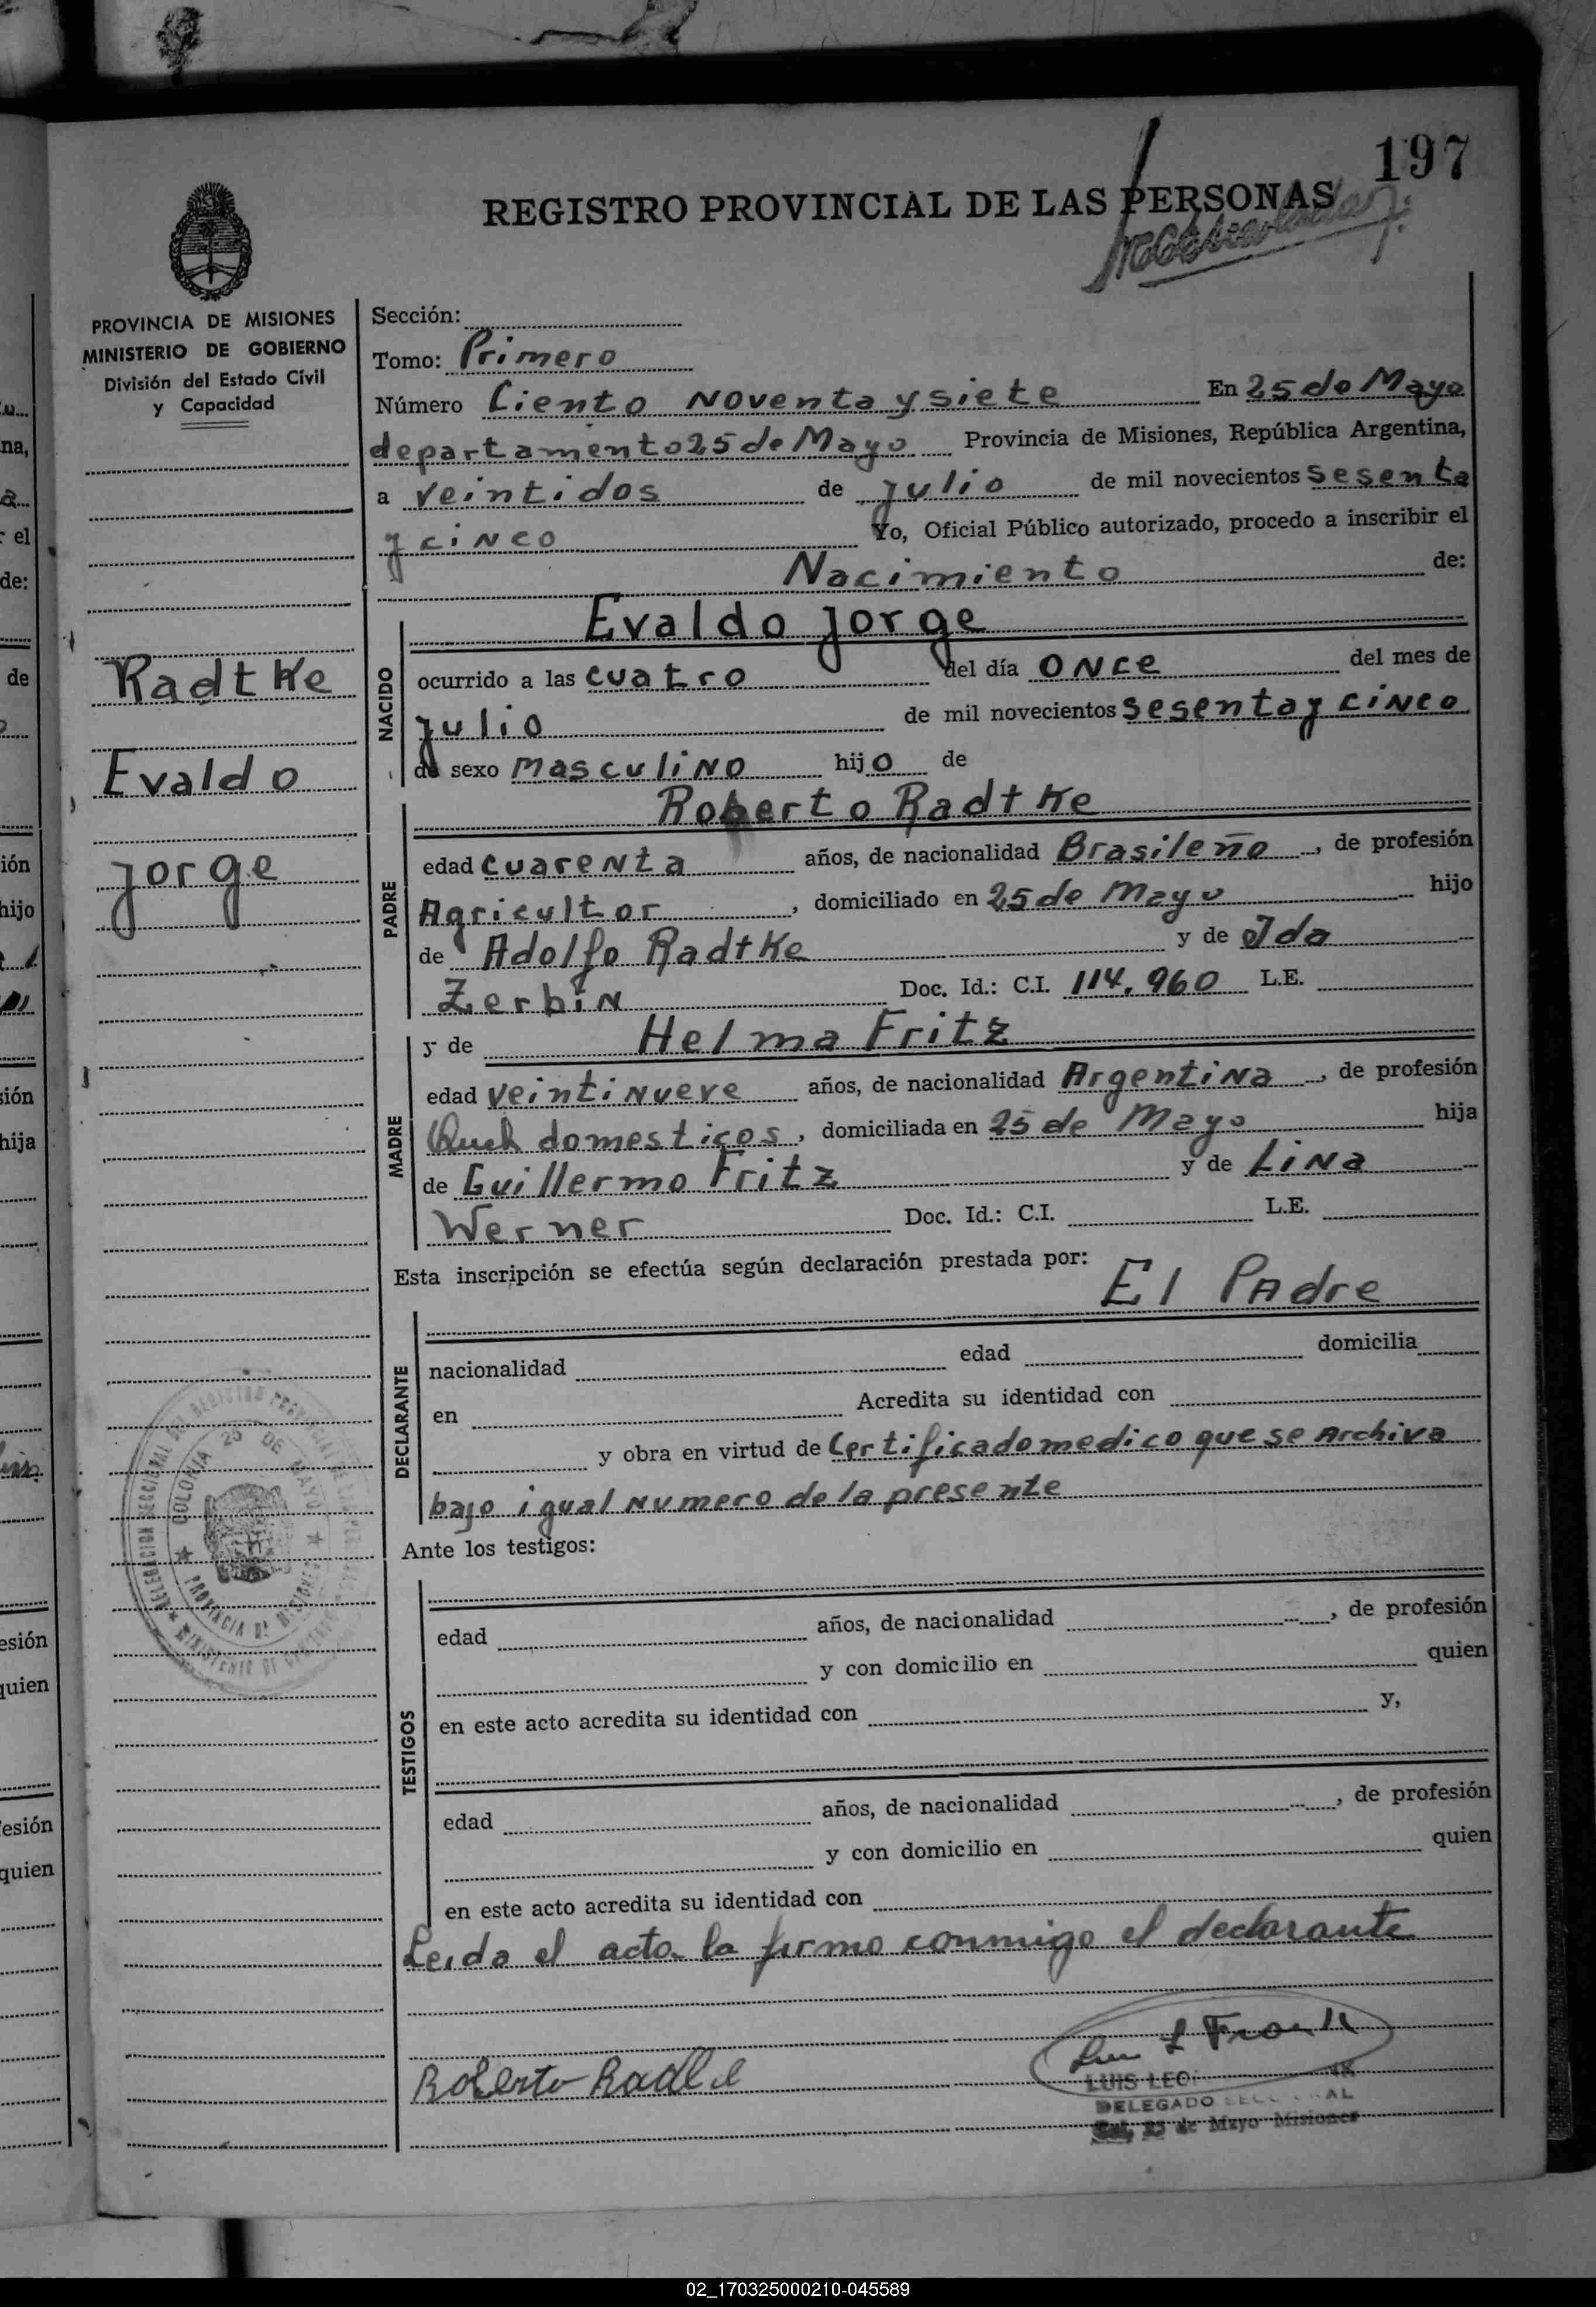 197
REGISTRO PROVINCIAL DE LAS PERSONAS
PROVINCIA DE MISIONES
MINISTERIO DE GOBIERNO
División del Estado Civil
y Capacidad
Radtke
Evaldo
Jorge
Sección:
Tomo: Primero
Número Ciento Noventa y siete En 25 de Mayo
departamento 25 de Mayo Provincia de Misiones, República Argentina,
a veintidos de Julio de mil novecientos sesenta
y cinco Yo, Oficial Público autorizado, procedo a inscribir el
Nacimiento de:
NACIDO
Evaldo Jorge
ocurrido a las cuatro del día once del mes de
Julio de mil novecientos sesenta y cinco
de sexo masculino hijo de
PADRE
Roberto Radtke
edad cuarenta años, de nacionalidad Brasileño, de profesión
Agricultor, domiciliado en 25 de Mayo hijo
de Adolfo Radtke y de Ida
Zerbin Doc. Id.: C.I. 114,960 L.E.
MADRE
y de Helma Fritz
edad veintinueve años, de nacionalidad Argentina, de profesión
domesticos, domiciliada en 25 de Mayo hija
de Guillermo Fritz y de Lina
Werner Doc. Id.: C.I. L.E.
Esta inscripción se efectúa según declaración prestada por:
El Padre
DECLARANTE
nacionalidad edad domicilia
en Acredita su identidad con
y obra en virtud de Certificado medico que se Archiva
bajo igual numero de la presente
Ante los testigos:
TESTIGOS
edad años, de nacionalidad , de profesión
y con domicilio en quien
en este acto acredita su identidad con y,
edad años, de nacionalidad , de profesión
y con domicilio en quien
en este acto acredita su identidad con
Leida el acta la firma conmigo el declarante
Roberto Radtke
LUIS LEO
DELEGADO
25 de Mayo Misiones
COLONIA 25 DE MAYO
PROVINCIA DE MISIONES
02_170325000210-045589